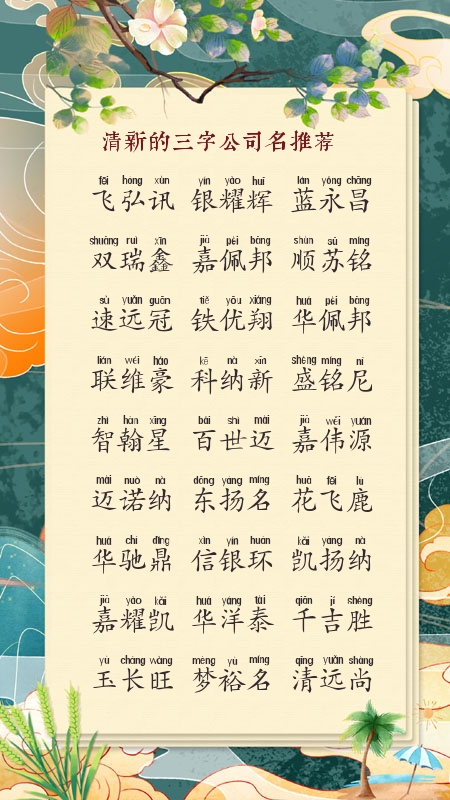 清新的三字公司名推荐
fēi hóng xùn yín yào huī lán yǒng chāng
飞弘讯 银耀辉 蓝永昌
shuāng ruì xīn jiā pèi bāng shùn sū míng
双瑞鑫 嘉佩邦 顺苏铭
sù yuǎn guān tiě yōu xiáng huá pèi bāng
速远冠 铁优翔 华佩邦
lián wéi háo kē nà xīn shèng míng ní
联维豪 科纳新 盛铭尼
zhì hàn xīng bǎi shì mài jiā wěi yuán
智翰星 百世迈 嘉伟源
mài nuò nà dōng yáng míng huā fēi lù
迈诺纳 东扬名 花飞鹿
huá chí dǐng xìn yín huán kǎi yáng nà
华驰鼎 信银环 凯扬纳
jiā yào kǎi huá yáng tài qiān jí shèng
嘉耀凯 华洋泰 千吉胜
yù cháng wàng mèng yù míng qīng yuǎn shàng
玉长旺 梦裕名 清远尚